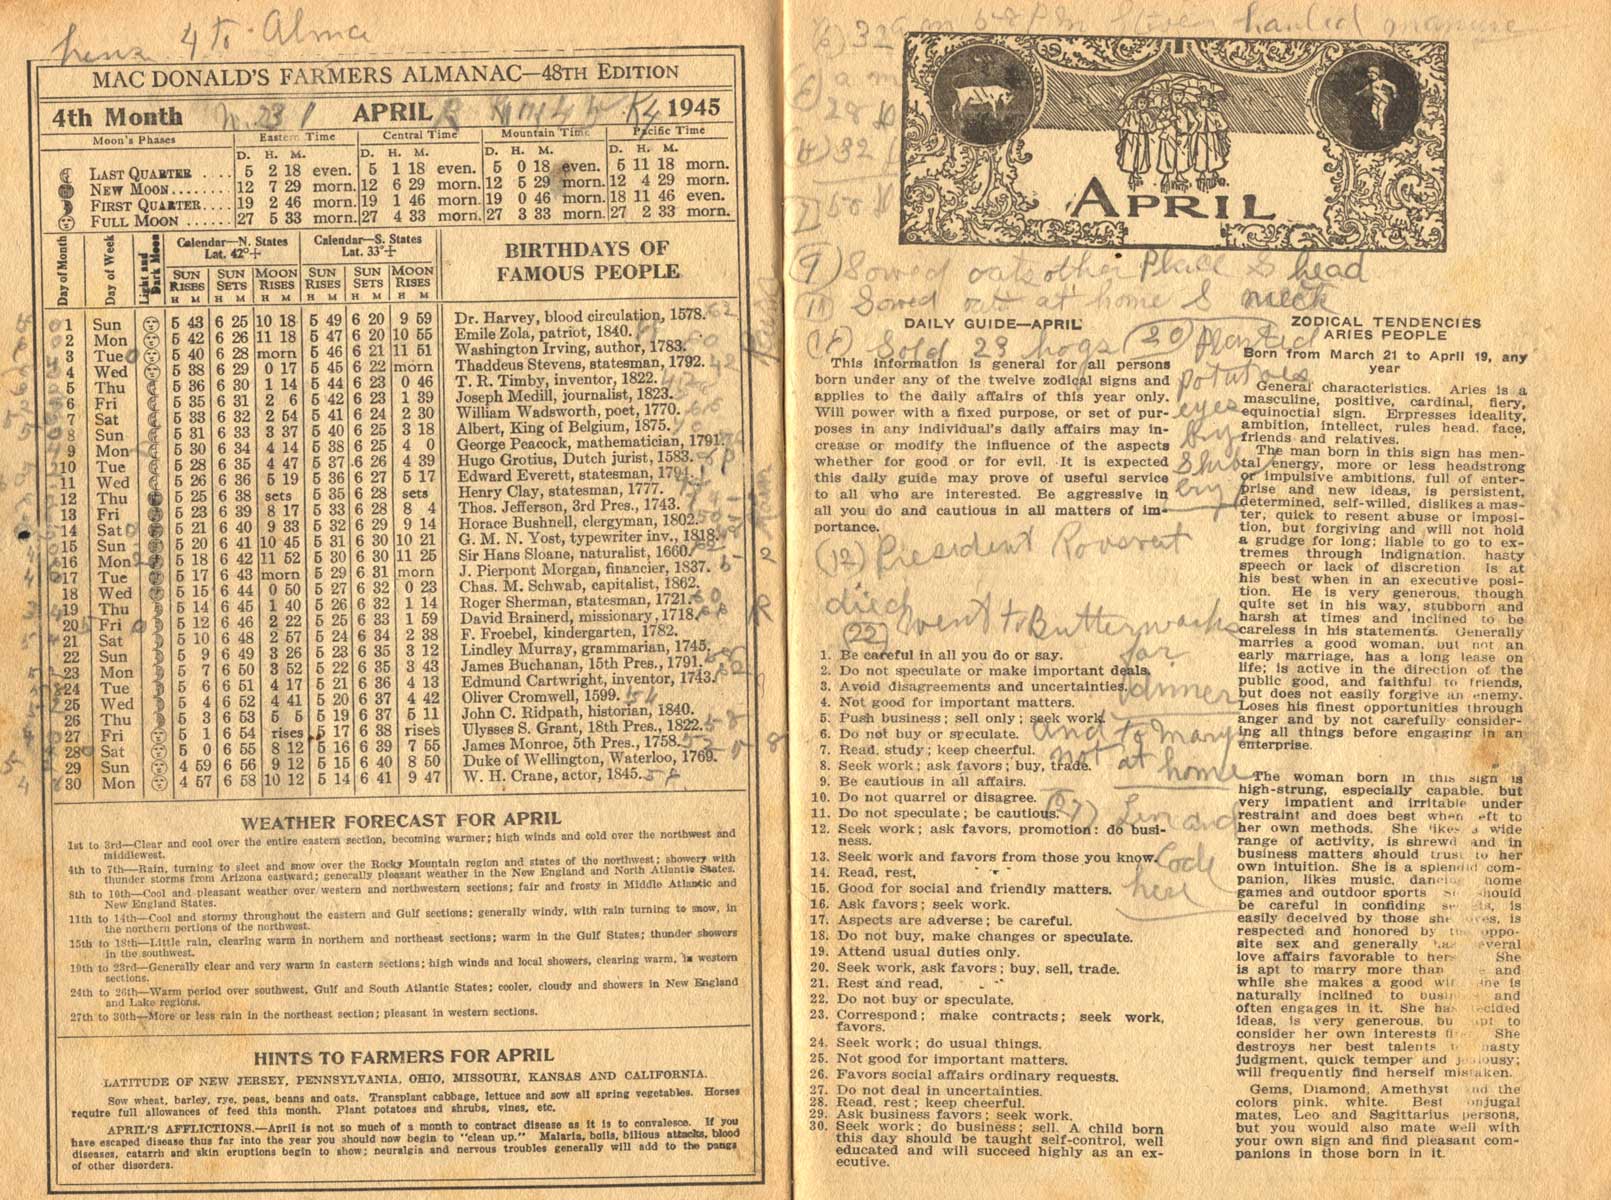 hens 4 to Alma
MAC DONALD'S FARMERS ALMANAC—48TH EDITION
4th Month APRIL 1945
Moon's Phases Eastern Time Central Time Mountain Time Pacific Time
D. H. M. D. H. M. D. H. M. D. H. M.
LAST QUARTER .... 5 2 18 even. 5 1 18 even. 5 0 18 even. 5 11 18 morn.
NEW MOON........ 12 7 29 morn. 12 6 29 morn. 12 5 29 morn. 12 4 29 morn.
FIRST QUARTER.... 19 2 46 morn. 19 1 46 morn. 19 0 46 morn. 18 11 46 even.
FULL MOON ...... 27 5 33 morn. 27 4 33 morn. 27 3 33 morn. 27 2 33 morn.
Day of Month Day of Week Light and Dark Moon Calendar—N. States Lat. 42°+ Calendar—S. States Lat. 33°+ BIRTHDAYS OF FAMOUS PEOPLE
SUN RISES SUN SETS MOON RISES SUN RISES SUN SETS MOON RISES
H M H M H M H M H M H M
1 Sun 5 43 6 25 10 18 5 49 6 20 9 59 Dr. Harvey, blood circulation, 1578.
2 Mon 5 42 6 26 11 18 5 47 6 20 10 55 Emile Zola, patriot, 1840.
3 Tue 5 40 6 28 morn 5 46 6 21 11 51 Washington Irving, author, 1783.
4 Wed 5 38 6 29 0 17 5 45 6 22 morn Thaddeus Stevens, statesman, 1792.
5 Thu 5 36 6 30 1 14 5 44 6 23 0 46 T. R. Timby, inventor, 1822.
6 Fri 5 35 6 31 2 6 5 42 6 23 1 39 Joseph Medill, journalist, 1823.
7 Sat 5 33 6 32 2 54 5 41 6 24 2 30 William Wadsworth, poet, 1770.
8 Sun 5 31 6 33 3 37 5 40 6 25 3 18 Albert, King of Belgium, 1875.
9 Mon 5 30 6 34 4 14 5 38 6 25 4 0 George Peacock, mathematician, 1791.
10 Tue 5 28 6 35 4 47 5 37 6 26 4 39 Hugo Grotius, Dutch jurist, 1583.
11 Wed 5 26 6 36 5 19 5 36 6 27 5 17 Edward Everett, statesman, 1794.
12 Thu 5 25 6 38 sets 5 35 6 28 sets Henry Clay, statesman, 1777.
13 Fri 5 23 6 39 8 17 5 33 6 28 8 4 Thos. Jefferson, 3rd Pres., 1743.
14 Sat 5 21 6 40 9 33 5 32 6 29 9 14 Horace Bushnell, clergyman, 1802.
15 Sun 5 20 6 41 10 45 5 31 6 30 10 21 G. M. N. Yost, typewriter inv., 1818.
16 Mon 5 18 6 42 11 52 5 30 6 30 11 25 Sir Hans Sloane, naturalist, 1660.
17 Tue 5 17 6 43 morn 5 29 6 31 morn J. Pierpont Morgan, financier, 1837.
18 Wed 5 15 6 44 0 50 5 27 6 32 0 23 Chas. M. Schwab, capitalist, 1862.
19 Thu 5 14 6 45 1 40 5 26 6 32 1 14 Roger Sherman, statesman, 1721.
20 Fri 5 12 6 46 2 22 5 25 6 33 1 59 David Brainerd, missionary, 1718.
21 Sat 5 10 6 48 2 57 5 24 6 34 2 38 F. Froebel, kindergarten, 1782.
22 Sun 5 9 6 49 3 26 5 23 6 35 3 12 Lindley Murray, grammarian, 1745.
23 Mon 5 7 6 50 3 52 5 22 6 35 3 43 James Buchanan, 15th Pres., 1791.
24 Tue 5 6 6 51 4 17 5 21 6 36 4 13 Edmund Cartwright, inventor, 1743.
25 Wed 5 4 6 52 4 41 5 20 6 37 4 42 Oliver Cromwell, 1599.
26 Thu 5 3 6 53 5 5 5 19 6 37 5 11 John C. Ridpath, historian, 1840.
27 Fri 5 1 6 54 rises 5 17 6 38 rises Ulysses S. Grant, 18th Pres., 1822.
28 Sat 5 0 6 55 8 12 5 16 6 39 7 55 James Monroe, 5th Pres., 1758.
29 Sun 4 59 6 56 9 12 5 15 6 40 8 50 Duke of Wellington, Waterloo, 1769.
30 Mon 4 57 6 58 10 12 5 14 6 41 9 47 W. H. Crane, actor, 1845.
WEATHER FORECAST FOR APRIL
1st to 3rd—Clear and cool over the entire eastern section, becoming warmer; high winds and cold over the northwest and
middlewest.
4th to 7th—Rain, turning to sleet and snow over the Rocky Mountain region and states of the northwest; showery with
thunder storms from Arizona eastward; generally pleasant weather in the New England and North Atlantic States.
8th to 10th—Cool and pleasant weather over western and northwestern sections; fair and frosty in Middle Atlantic and
New England States.
11th to 14th—Cool and stormy throughout the eastern and Gulf sections; generally windy, with rain turning to snow, in
the northern portions of the northwest.
15th to 18th—Little rain, clearing warm in northern and northeast sections; warm in the Gulf States; thunder showers
in the southwest.
19th to 23rd—Generally clear and very warm in eastern sections; high winds and local showers, clearing warm, in western
sections.
24th to 26th—Warm period over southwest, Gulf and South Atlantic States; cooler, cloudy and showers in New England
and Lake regions.
27th to 30th—More or less rain in the northeast section; pleasant in western sections.
HINTS TO FARMERS FOR APRIL
LATITUDE OF NEW JERSEY, PENNSYLVANIA, OHIO, MISSOURI, KANSAS AND CALIFORNIA.
Sow wheat, barley, rye, peas, beans and oats. Transplant cabbage, lettuce and sow all spring vegetables. Horses
require full allowances of feed this month. Plant potatoes and shrubs, vines, etc.
APRIL'S AFFLICTIONS.—April is not so much of a month to contract disease as it is to convalesce. If you
have escaped disease thus far into the year you should now begin to "clean up." Malaria, boils, bilious attacks, blood
diseases, catarrh and skin eruptions begin to show; neuralgia and nervous troubles generally will add to the pangs
of other disorders.
hauled manure
APRIL
(9) Sowed oats other Place S head
(11) Sowed oat at home S neck
Sold 23 hogs (20) Planted
potatoes
eyes
DAILY GUIDE—APRIL
This information is general for all persons
born under any of the twelve zodical signs and
applies to the daily affairs of this year only.
Will power with a fixed purpose, or set of pur-
poses in any individual's daily affairs may in-
crease or modify the influence of the aspects
whether for good or for evil. It is expected
this daily guide may prove of useful service
to all who are interested. Be aggressive in
all you do and cautious in all matters of im-
portance.
(12) President Roosvat
died
(22) Went to Butterwacks
for
dinner
and to Mary
not at home
(27)
here
1. Be careful in all you do or say.
2. Do not speculate or make important deals.
3. Avoid disagreements and uncertainties.
4. Not good for important matters.
5. Push business; sell only; seek work.
6. Do not buy or speculate.
7. Read, study; keep cheerful.
8. Seek work; ask favors; buy, trade.
9. Be cautious in all affairs.
10. Do not quarrel or disagree.
11. Do not speculate; be cautious.
12. Seek work; ask favors, promotion: do busi-
ness.
13. Seek work and favors from those you know.
14. Read, rest,
15. Good for social and friendly matters.
16. Ask favors; seek work.
17. Aspects are adverse; be careful.
18. Do not buy, make changes or speculate.
19. Attend usual duties only.
20. Seek work, ask favors; buy, sell, trade.
21. Rest and read,
22. Do not buy or speculate.
23. Correspond; make contracts; seek work,
favors.
24. Seek work; do usual things.
25. Not good for important matters.
26. Favors social affairs ordinary requests.
27. Do not deal in uncertainties.
28. Read, rest; keep cheerful.
29. Ask business favors; seek work.
30. Seek work; do business; sell. A child born
this day should be taught self-control, well
educated and will succeed highly as an ex-
ecutive.
ZODICAL TENDENCIES
ARIES PEOPLE
Born from March 21 to April 19, any
year
General characteristics. Aries is a
masculine, positive, cardinal, fiery,
equinoctial sign. Erpresses ideality,
ambition, intellect, rules head, face,
friends and relatives.
The man born in this sign has men-
tal energy, more or less headstrong
or impulsive ambitions, full of enter-
prise and new ideas, is persistent,
determined, self-willed, dislikes a mas-
ter, quick to resent abuse or imposi-
tion, but forgiving and will not hold
a grudge for long; liable to go to ex-
tremes through indignation, hasty
speech or lack of discretion. Is at
his best when in an executive posi-
tion. He is very generous, though
quite set in his way, stubborn and
harsh at times and inclined to be
careless in his statements. Generally
marries a good woman, but not an
early marriage, has a long lease on
life; is active in the direction of the
public good, and faithful to friends,
but does not easily forgive an enemy.
Loses his finest opportunities through
anger and by not carefully consider-
ing all things before engaging in an
enterprise.
The woman born in this sign is
high-strung, especially capable, but
very impatient and irritable under
restraint and does best when left to
her own methods. She likes a wide
range of activity, is shrewd and in
business matters should trust to her
own intuition. She is a splendid com-
panion, likes music, dancing, home
games and outdoor sports should
be careful in confiding is
easily deceived by those she loves, is
respected and honored by the oppo-
site sex and generally has several
love affairs favorable to her. She
is apt to marry more than and
while she makes a good wife she is
naturally inclined to business and
often engages in it. She has decided
ideas, is very generous, but apt to
consider her own interests first. She
destroys her best talents by hasty
judgment, quick temper and jealousy;
will frequently find herself mistaken.
Gems, Diamond, Amethyst and the
colors pink, white. Best conjugal
mates, Leo and Sagittarius persons,
but you would also mate well with
your own sign and find pleasant com-
panions in those born in it.